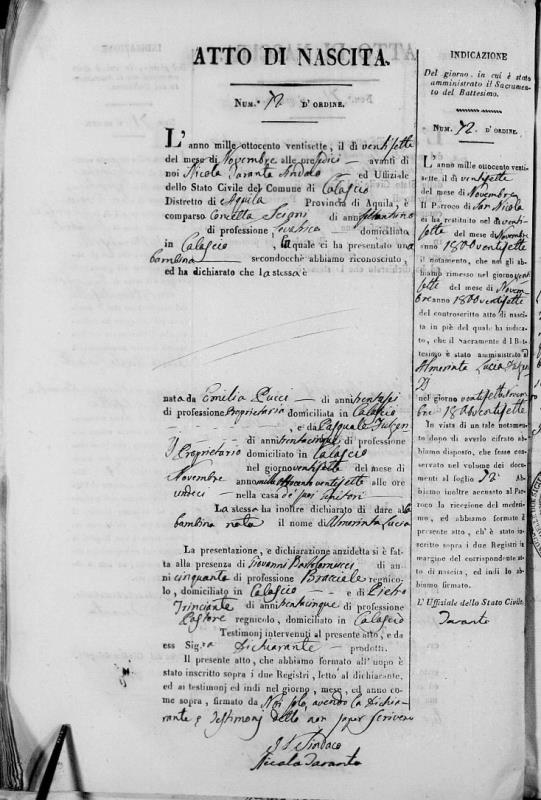 ATTO DI NASCITA.
Num.º 72 d'ordine.
L'anno mille ottocento ventisette, il dì ventisette
del mese di Novembre alle ore sedici — avanti di
noi Nicola Taranta Sindaco ed Uffiziale
dello Stato Civile del Comune di Calascio
Distretto di Aquila Provincia di Aquila, è
comparso Concetta di anni
di professione, Levatrice — domiciliata
in Calascio, la quale ci ha presentato una
bambina — secondocchè abbiamo riconosciuto,
ed ha dichiarato che la stessa è
nata da Emilia Pucci — di anni trentasei
di professione Proprietaria domiciliata in Calascio
, e da Pasquale
Proprietario di anni trentacinque di professione
domiciliato in Calascio
nel giorno ventisette del mese di
Novembre anno mille ottocento ventisette alle ore
undeci — nella casa de' suoi genitori —
La stessa ha inoltre dichiarato di dare alla
bambina nata il nome di Almerinta Lucia
La presentazione, e dichiarazione anzidetta si è fat-
ta alla presenza di Giovanni Bartolomucci di an-
ni cinquanta di professione Bracciale regnico-
lo, domiciliato in Calascio — e di Pietro
Trinciante di anni trentacinque di professione
Pastore regnicolo, domiciliato in Calascio
Testimonj intervenuti al presente atto, e da
ess Sig.ra Dichiarante — prodotti.
Il presente atto, che abbiamo formato all'uopo è
stato inscritto sopra i due Registri, letto al dichiarante,
ed ai testimonj ed indi nel giorno, mese, ed anno co-
me sopra, firmato da Noi solo, avendo la Dichia-
rante e Testimonj detto non saper scrivere
Il Sindaco
Nicola Taranta
INDICAZIONE
Del giorno, in cui è stato
amministrato il Sacramen-
to del Battesimo.
Num. 72. d'ordine.
L'anno mille ottocento venti-
sette, il dì ventisette
del mese di Novembre
Il Parroco di San Nicola
ci ha restituito nel dì venti-
sette del mese di Novembre
anno 1800ventisette
il notamento, che noi gli ab-
biamo rimesso nel giorno venti-
sette del mese di Novem-
bre anno 1800ventisette
del controscritto atto di nasci-
ta in piè del quale ha indica-
to, che il Sacramento di Bat-
tesimo è stato amministrato ad
Almerinta Lucia
nel giorno ventisette Novem-
bre 1800ventisette
In vista di un tale notamen-
to dopo di averlo cifrato ab-
biamo disposto, che fosse con-
servato nel volume dei docu-
menti al foglio 72. Ab-
biamo inoltre accusato al Par-
roco la ricezione del medesi-
mo, ed abbiamo formato il
presente atto, ch'è stato in-
scritto sopra i due Registri in
margine del corrispondente at-
to di nascita, ed indi lo ab-
biamo firmato.
L'Uffiziale dello Stato Civile
Taranta